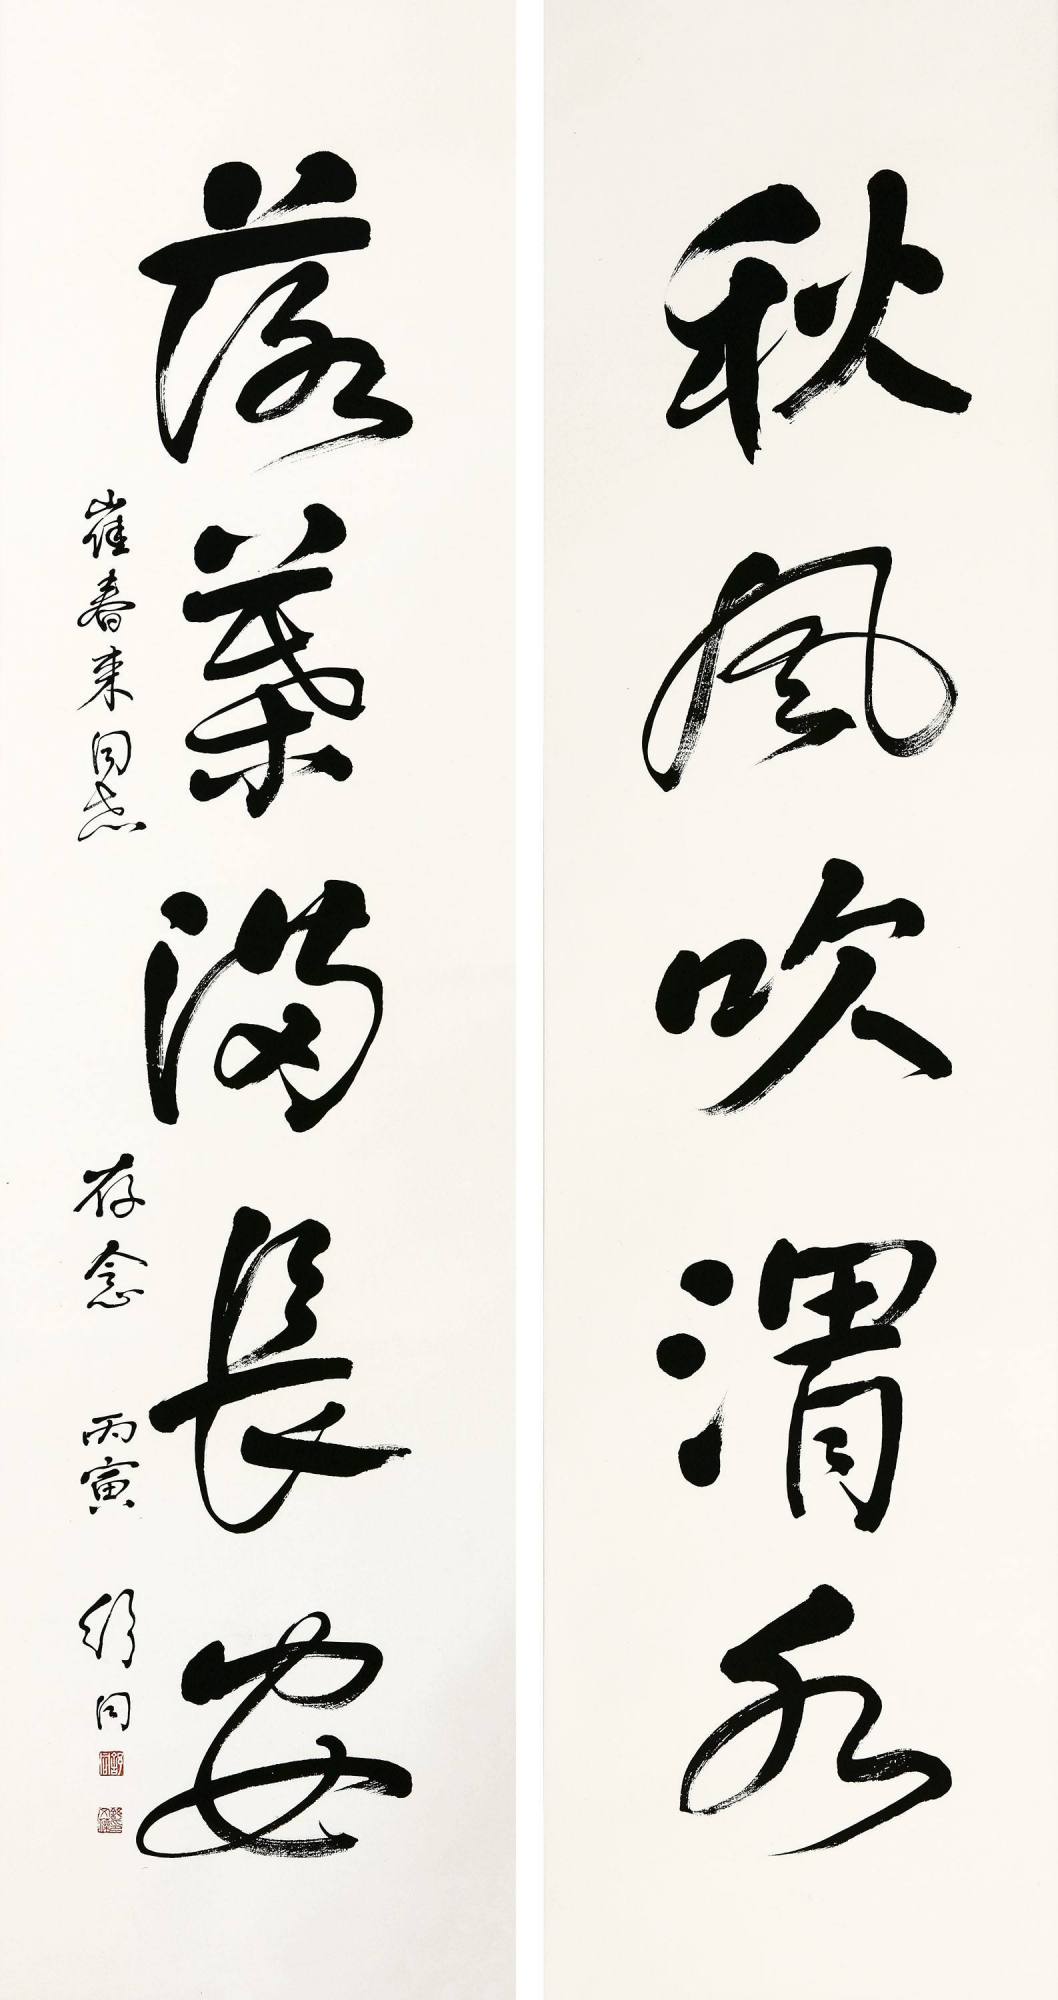 秋風吹渭水
落葉滿長安
崔春来同志 存念 丙寅 舒同